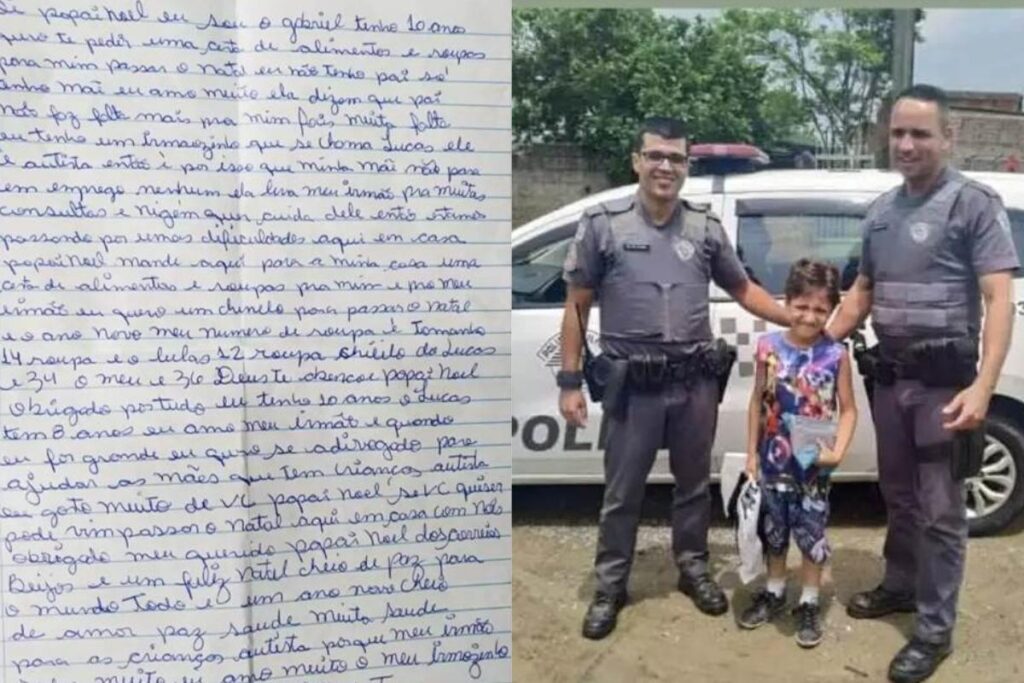 De popai noel eu sou o gabriel tenho 10 anos
quro te pedir uma cesta de alimentos e roupas
para mim passar o natal eu não tenho pai só
tenho mai eu amo muito ela dizem que pai
não foz falta mais pra mim fais muita falta
eu tenho um irmaozinho que se choma Lucas ele
é autista entõo é por isso que minha mãi não para
em emprego nenhum ela leva meu irmão pra muitas
consultas e nigém quer cuida dele entõ estamos
passando por umas dificuldades aqui em casa
popai noel mande aqui para a minha casa uma
cesta de alimentos e roupas pra mim e pro meu
irmão eu quero um chinelo para passar o natal
e o ano novo meu numero de roupa é Tomanho
14 roupa e o lulas 12 roupa do Lucas
e 34 o meu e 36 Deus te abencoe popai noel
obrigado por tudo eu tenho 10 anos o Lucas
tem 8 anos eu amo meu irmão e quando
eu for grande eu quro se adivogado para
ajudar as mães que tem crianças autista
eu goto muito de VC popai noel se VC quiser
pode vim passar o natal aqui em casa com nois
obrigado meu querido popai noel dos correios
Beijos e um feliz natel cheio de paz para
o mundo Todo e um ano novo cheio
de amor paz saude muita saude
para as crianças autista porque meu irmão
muito eu amo muito o meu irmozinho
POLI